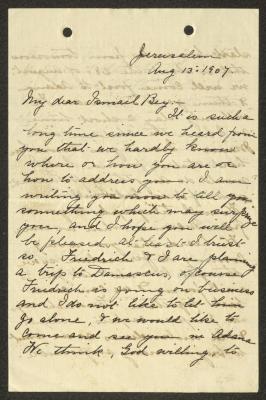 Jerusalem
Aug 13th 1907.
My dear Ismail Bey:-
It is such a
long time since we heard from
you that we hardly know
where or how you are or
how to address you. I am
writing you now to tell you
something which may surprize
you, and I hope you will
be pleased, at least I trust
so. Friedrich & I are planing
a trip to Damascus, of course
Friedrich is going on business
and I do not like to let him
go alone, & we would like to
come and see you in Adana
We think, God willing, to